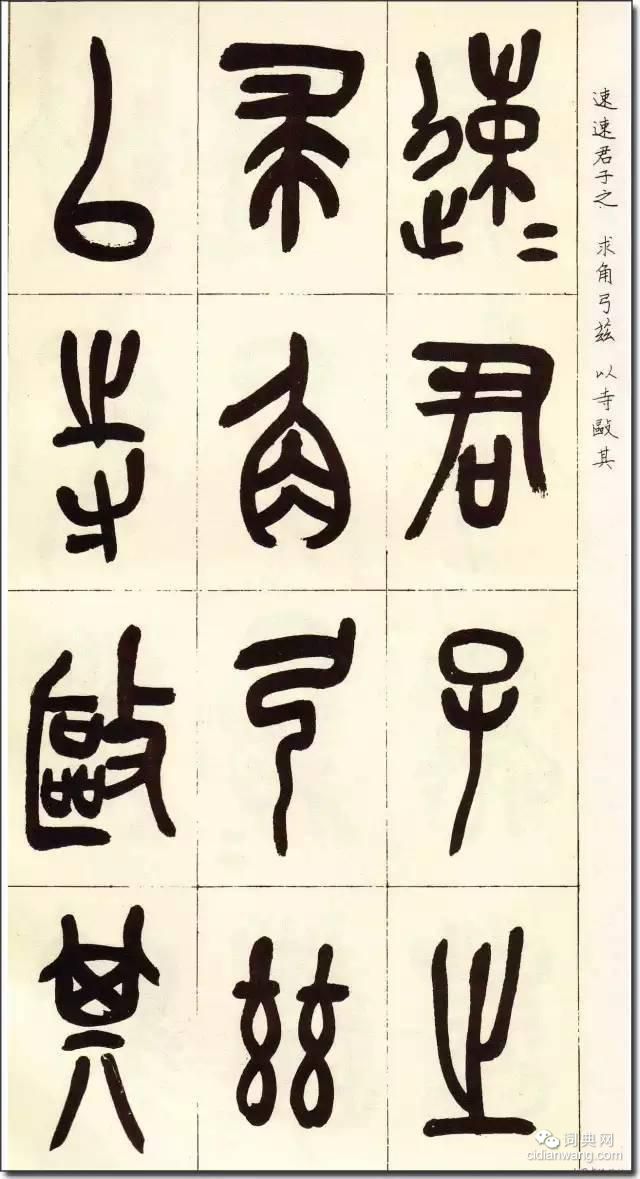 速速君子之 求角弓兹 以寺敺其
速〻君子之
求角弓兹
以寺敺其
词典网
cidianwang.com